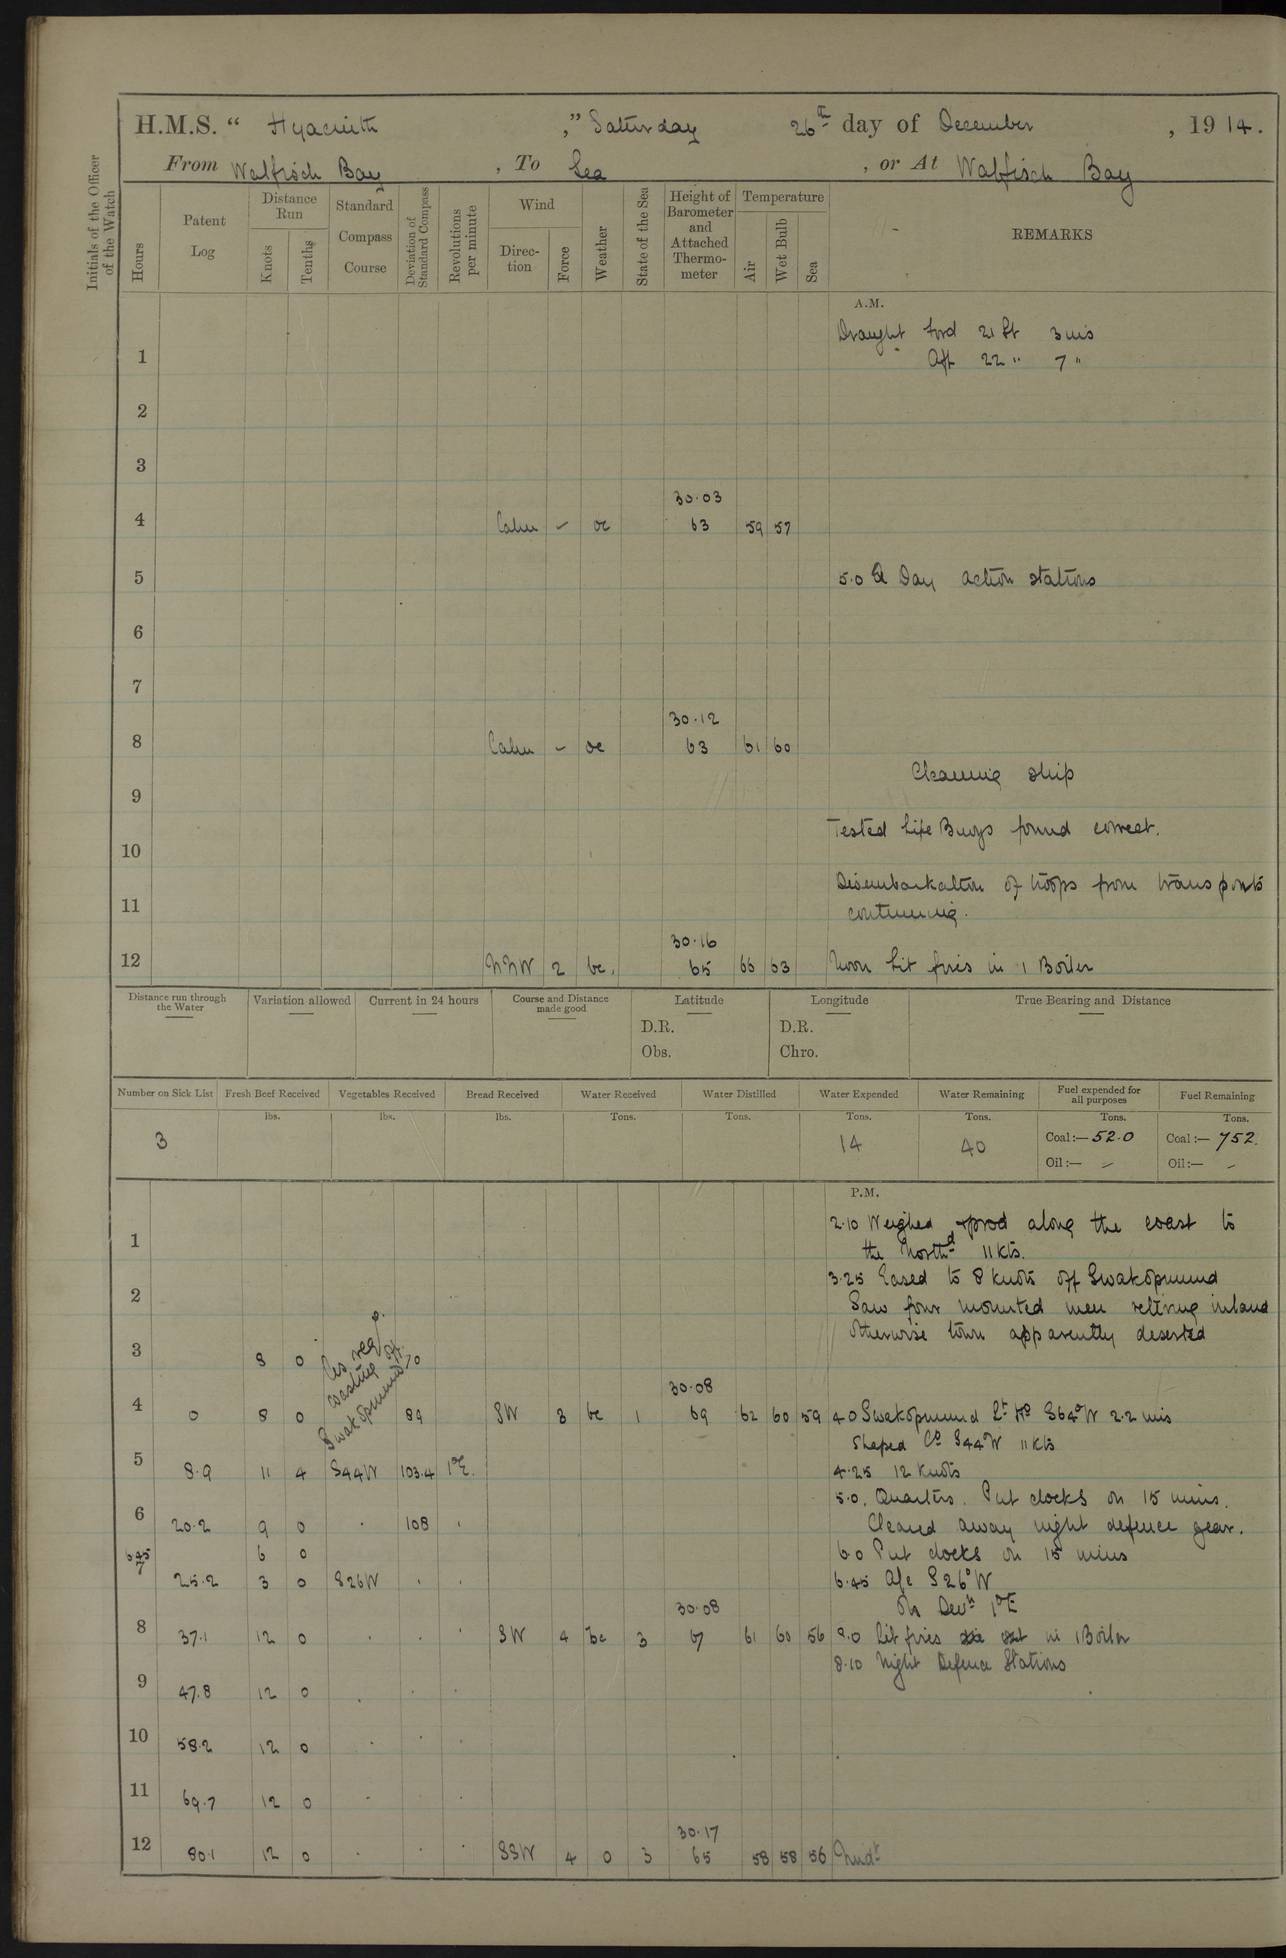 H.M.S. “ Hyacinth ,” Saturday 26th day of December , 1914.
From Walfisch Bay , To Sea , or At Walfisch Bay
Initials of the Officer of the Watch
Hours
Patent Log
Distance Run
Knots
Tenths
Standard Compass Course
Deviation of Standard Compass
Revolutions per minute
Wind
Direc-tion
Force
Weather
State of the Sea
Height of Barometer and Attached Thermo-meter
Temperature
Air
Wet Bulb
Sea
REMARKS
A.M.
Draught Ford 21 ft 3 ins
1 Aft 22 " 7 "
2
3
30.03
4 Calm – oc 63 59 57
5 5.0 Day action stations
6
7
30.12
8 Calm – oc 63 61 60
Cleaning ship
9
Tested Life Buoys found correct.
10
Disembarkation of troops from transports
11 continuing.
30.16
12 NNW 2 bc. 65 66 63 Noon Lit fires in 1 Boiler
Distance run through the Water
Variation allowed
Current in 24 hours
Course and Distance made good
Latitude
D.R.
Obs.
Longitude
D.R.
Chro.
True Bearing and Distance
Number on Sick List
Fresh Beef Received
Vegetables Received
Bread Received
Water Received
Water Distilled
Water Expended
Water Remaining
Fuel expended for all purposes
Fuel Remaining
lbs. lbs. lbs. Tons. Tons. Tons. Tons. Tons. Tons.
3 14 40 Coal :— 52.0 Coal :— 752.
Oil :— – Oil :— –
P.M.
2.10 Weighed & procd along the coast to
1 the Northd 11 kts.
3.25 Eased to 8 knots off Swakopmund
2 Saw four mounted men retiring inland
otherwise town apparently deserted
3 8 0 As req. coasting off Swakopmund 70
30.08
4 0 8 0 89 SW 3 bc 1 69 62 60 59 4.0 Swakopmund Lt Ho S64°W 2.2 mis
Shaped Co S44°W 11 kts
5 8.9 11 4 S44W 103.4 1°E. 4.25 12 knots
5.0. Quarters. Put clocks on 15 mins.
6 20.2 9 0 . 108 . Cleared away night defence gear.
6.45 6 0 6.0 Put clocks on 15 mins
7 25.2 3 0 S26W . . 6.45 A/c S26°W
30.08 Devn 1°E
8 37.1 12 0 . . . SW 4 bc 3 67 61 60 56 8.0 Lit fires in 1 Boiler
8.10 Night Defence Stations
9 47.8 12 0 . . .
10 58.2 12 0 . . .
11 69.7 12 0 . .
30.17
12 80.1 12 0 . . . SSW 4 o 3 65 58 58 56 Midt